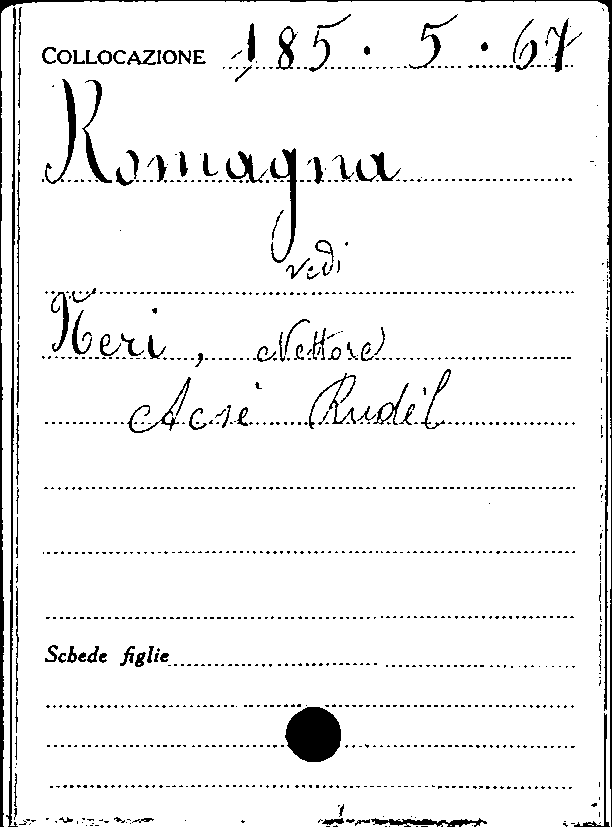 COLLOCAZIONE 185. 5. 67
Romagna
vedi
Neri, Nettore
Acsè Rudèl
Schede figlie